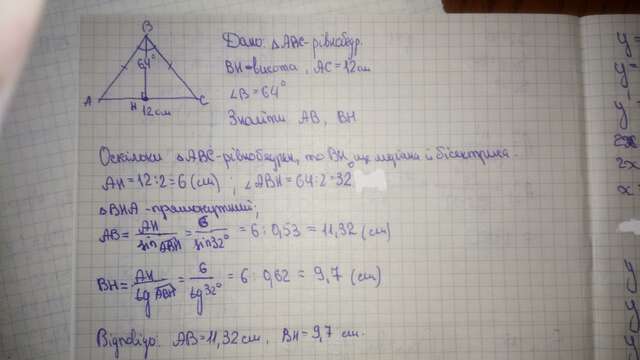 B
Дано: △ABC - рівнобедр.
64°
BH - висота, AC = 12 см
∠B = 64°
A H C
12 см
Знайти AB, BH
Оскільки △ABC - рівнобедрен, то BH ще медіана й бісектриса.
AH = 12 : 2 = 6 (см), ∠ABH = 64 : 2 = 32
△BHA - прямокутний;
AB = AH / sin ABH = 6 / sin 32° = 6 : 0,53 = 11,32 (см)
BH = AH / tg ABH = 6 / tg 32° = 6 : 0,62 = 9,7 (см)
Відповідь: AB = 11,32 см, BH = 9,7 см.
y =
y =
y
2x
2x
x
y
y
y